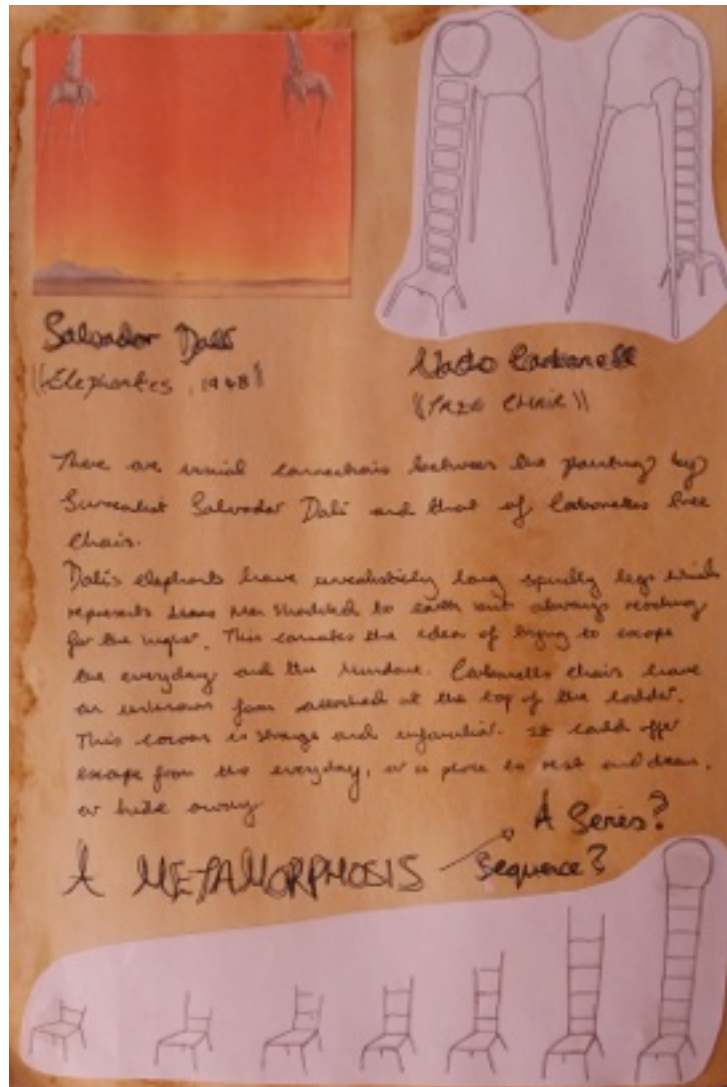 Salvador Dalí
"Elephantes, 1948"
Nacho Carbonell
"TREE CHAIR"
There are visual connections between the painting by
Surrealist Salvador Dalí and that of Carbonells tree
chair.
Dalí's elephants have unrealisticly long spindly legs which
represents to earth but always reaching
for the higher. This connates the idea of trying to escape
the everyday and the mundane. Carbonells chairs have
an unknown form attached at the top of the ladder.
This cocoon is strange and unfamiliar. It could offer
escape from the everyday, or a place to rest and dream,
or hide away
A Series?
A METAMORPHOSIS Sequence?